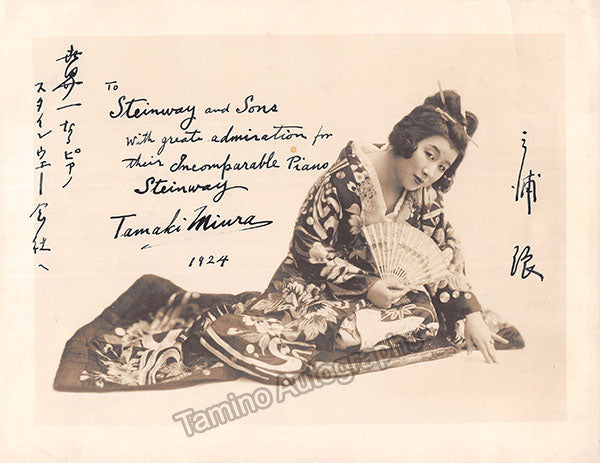 世界一なるピアノ
スタインウエー会社へ
To
Steinway and Sons
With great admiration for
their Incomparable Piano
Steinway
Tamaki Miura
1924
三浦 環
Tamino Autographs